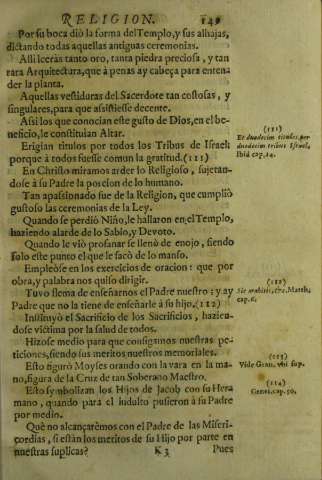 RELIGION. 149
Por su boca diò la forma del Templo, y sus alhajas,
dictando todas aquellas antiguas ceremonias.
Alli leeràs tanto oro, tanta piedra preciosa, y tan
rara Arquitectura, que à penas ay cabeça para enten-
der la planta.
Aquellas vestiduras del Sacerdote tan costosas, y
singulares, para que assistiesse decente.
Assi los que conocian este gusto de Dios, en el be-
neficio, le constituian Altar.
Erigian titulos por todos los Tribus de Israel,
porque à todos fuesse comun la gratitud. (111)
(111)
Et duodecim titulos, per
duodecim tribus Israel,
Ibid cap. 24.
En Christo miramos arder lo Religioso, sujetan-
dose à su Padre la porcion de lo humano.
Tan apassionado fue de la Religion, que cumpliò
gustoso las ceremonias de la Ley.
Quando se perdiò Niño, le hallaron en el Templo,
haziendo alarde de lo Sabio, y Devoto.
Quando le viò profanar se llenò de enojo, siendo
solo este punto el que le sacò de lo manso.
Empleòse en los exercicios de oracion: que por
obra, y palabra nos quiso dirigir.
Tuvo flema de enseñarnos el Padre nuestro: y ay
Padre que no la tiene de enseñarle à su hijo. (112)
(112)
Sic orabitis, &c. Matth.
cap. 6.
Instituyò el Sacrificio de los Sacrificios, hazien-
dose victima por la salud de todos.
Hizose medio para que consigamos nuestras pe-
ticiones, siendo sus meritos nuestros memoriales.
Esto figurò Moyses orando con la vara en la ma-
no, figura de la Cruz de tan Soberano Maestro.
(113)
Vide Gran. vbi sup.
Esto symbolizan los Hijos de Jacob con su Her-
mano, quando para el indulto pusieron à su Padre
por medio.
(114)
Genes. cap. 50.
Què no alcançarèmos con el Padre de las Miseri-
cordias, si estàn los meritos de su Hijo por parte en
nuestras suplicas?
K 3 Pues